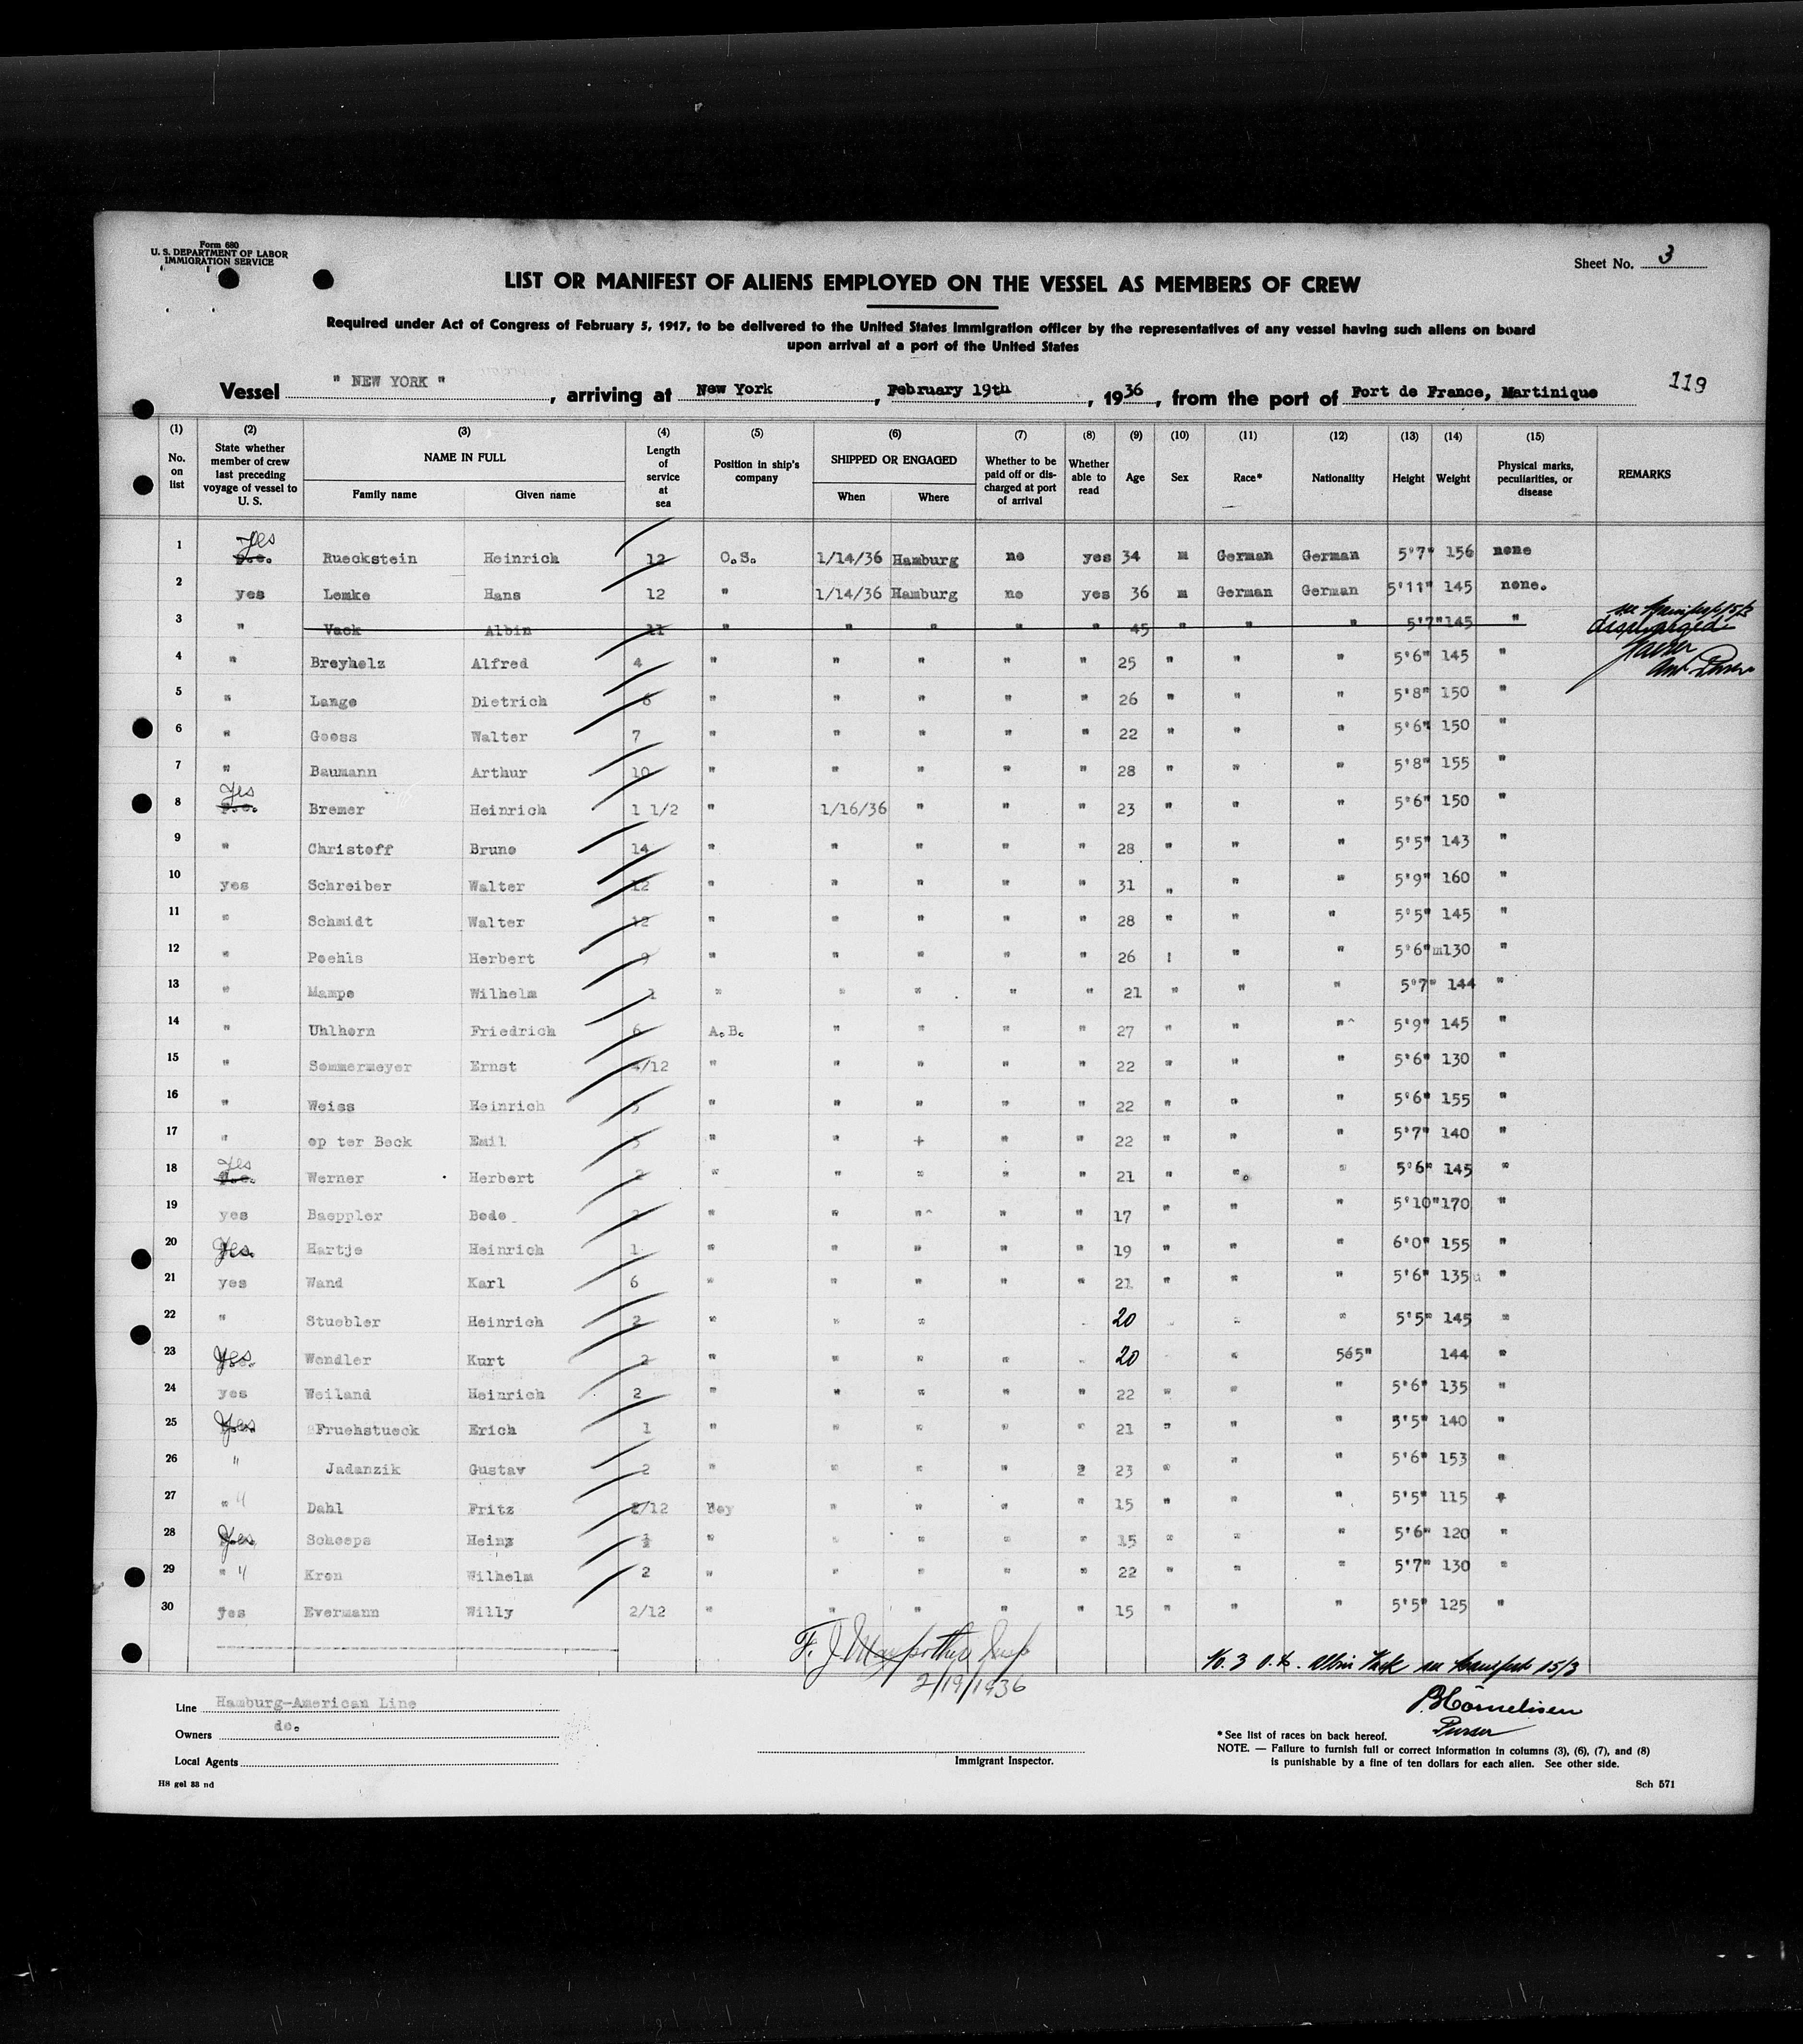 Form 680
U. S. DEPARTMENT OF LABOR
IMMIGRATION SERVICE
Sheet No. 3
LIST OR MANIFEST OF ALIENS EMPLOYED ON THE VESSEL AS MEMBERS OF CREW
Required under Act of Congress of February 5, 1917, to be delivered to the United States Immigration officer by the representatives of any vessel having such aliens on board
upon arrival at a port of the United States
Vessel " NEW YORK " , arriving at New York , February 19th , 1936 , from the port of Fort de France, Martinique 119
(1) (2) (3) (4) (5) (6) (7) (8) (9) (10) (11) (12) (13) (14) (15)
No. on list State whether member of crew last preceding voyage of vessel to U. S. NAME IN FULL Family name Given name Length of service at sea Position in ship's company SHIPPED OR ENGAGED When Where Whether to be paid off or discharged at port of arrival Whether able to read Age Sex Race* Nationality Height Weight Physical marks, peculiarities, or disease REMARKS
1 Yes Rueckstein Heinrich 12 O.S. 1/14/36 Hamburg no yes 34 m German German 5'7" 156 none
2 yes Lemke Hans 12 " 1/14/36 Hamburg no yes 36 m German German 5'11" 145 none.
3 " Vack Albin 11 " " " " " 45 " " " 5'7" 145 " discharged
4 " Breyholz Alfred 4 " " " " " 25 " " " 5'6" 145 "
5 " Lange Dietrich 6 " " " " " 26 " " " 5'8" 150 "
6 " Goess Walter 7 " " " " " 22 " " " 5'6" 150 "
7 " Baumann Arthur 10 " " " " " 28 " " " 5'8" 155 "
8 Yes Bremer Heinrich 1 1/2 " 1/16/36 " " " 23 " " " 5'6" 150 "
9 " Christoff Bruno 14 " " " " " 28 " " " 5'5" 143 "
10 yes Schreiber Walter 12 " " " " " 31 " " " 5'9" 160 "
11 " Schmidt Walter 12 " " " " " 28 " " " 5'5" 145 "
12 " Poehls Herbert 9 " " " " " 26 ! " " 5'6" m130 "
13 " Mampe Wilhelm 1 " " " " " 21 " " " 5'7" 144 "
14 " Uhlhorn Friedrich 6 A.B. " " " " 27 " " "^ 5'9" 145 "
15 " Sommermeyer Ernst 4/12 " " " " " 22 " " " 5'6" 130 "
16 " Weiss Heinrich 5 " " " " " 22 " " " 5'6" 155 "
17 " op ter Beck Emil 5 " " + " " 22 " " " 5'7" 140 "
18 Yes Werner Herbert 2 " " " " " 21 " " " 5'6" 145 "
19 yes Baeppler Bodo " " "^ " " 17 " " " 5'10" 170 "
20 Yes. Hartje Heinrich 1 " " " " " 19 " " " 6'0" 155 "
21 yes Wand Karl 6 " " " " " 21 " " " 5'6" 135 "
22 " Stuebler Heinrich 2 " " " 20 " " 5'5" 145 "
23 Yes. Wendler Kurt 2 " " " " 20 " 565" 144 "
24 yes Weiland Heinrich 2 " " " " " 22 " " " 5'6" 135 "
25 Yes Fruehstueck Erich 1 " " " " " 21 " " " 5'5" 140 "
26 " Jadanzik Gustav 2 " " " " 2 23 " " " 5'6" 153 "
27 " " Dahl Fritz 2/12 Boy " " " " 15 " " " 5'5" 115 "
28 Yes Scheeps Heinz " " " " " 15 " " " 5'6" 120 "
29 " " Kron Wilhelm 2 " " " " " 22 " " " 5'7" 130 "
30 yes Evermann Willy 2/12 " " " " " 15 " " " 5'5" 125 "
2/19/1936
Line Hamburg-American Line
Owners do.
Local Agents
Immigrant Inspector.
Purser
* See list of races on back hereof.
NOTE. — Failure to furnish full or correct information in columns (3), (6), (7), and (8)
is punishable by a fine of ten dollars for each alien. See other side.
Sch 571